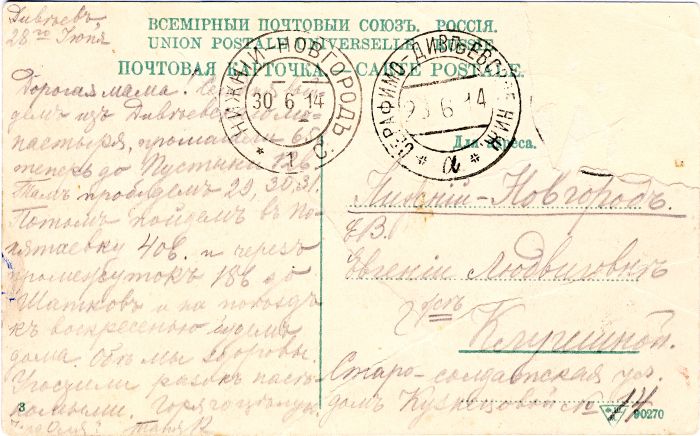 Дивѣевъ
28го Iюня
ВСЕМIРНЫЙ ПОЧТОВЫЙ СОЮЗЪ. РОССIЯ.
UNION POSTALE UNIVERSELLE. RUSSIE
ПОЧТОВАЯ КАРТОЧКА. CARTE POSTALE.
НИЖНIЙ-НОВГОРОДЪ
30 6 14
* 1
СЕРАФИМО-ДИВѢЕВСК НИЖ
29 6 14
* а *
Для адреса.
Дорогая мама.
демъ изъ Дивѣевского мо-
настыря, прошли 60в
теперь до Пустыни 12в
Тамъ пробудемъ 29, 30, 31.
Потомъ пойдемъ въ По-
чтаевку 40в. и черезъ
промежутокъ 18в до
Шатковъ а на поѣздѣ
къ воскресенью будемъ
дома. Обѣ мы здоровы.
Угостили разокъ насѣ-
комыми. Горячо цѣлую.
Таня К
Нижнiй-Новгородъ.
ЕВ.
Евгенiи Людвиговнѣ
Гдѣ
Старо-солдатская ул.
домъ Кузнецовой № 14
3
90270